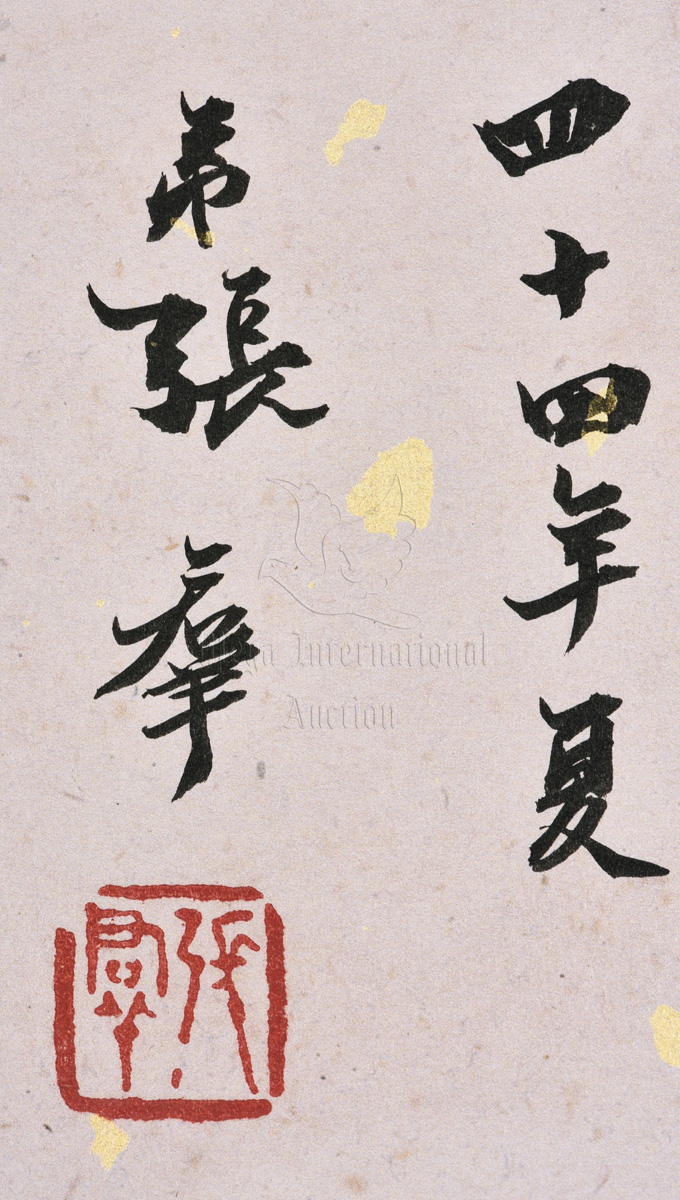 四十四年夏
弟張羣
張羣
International
Auction